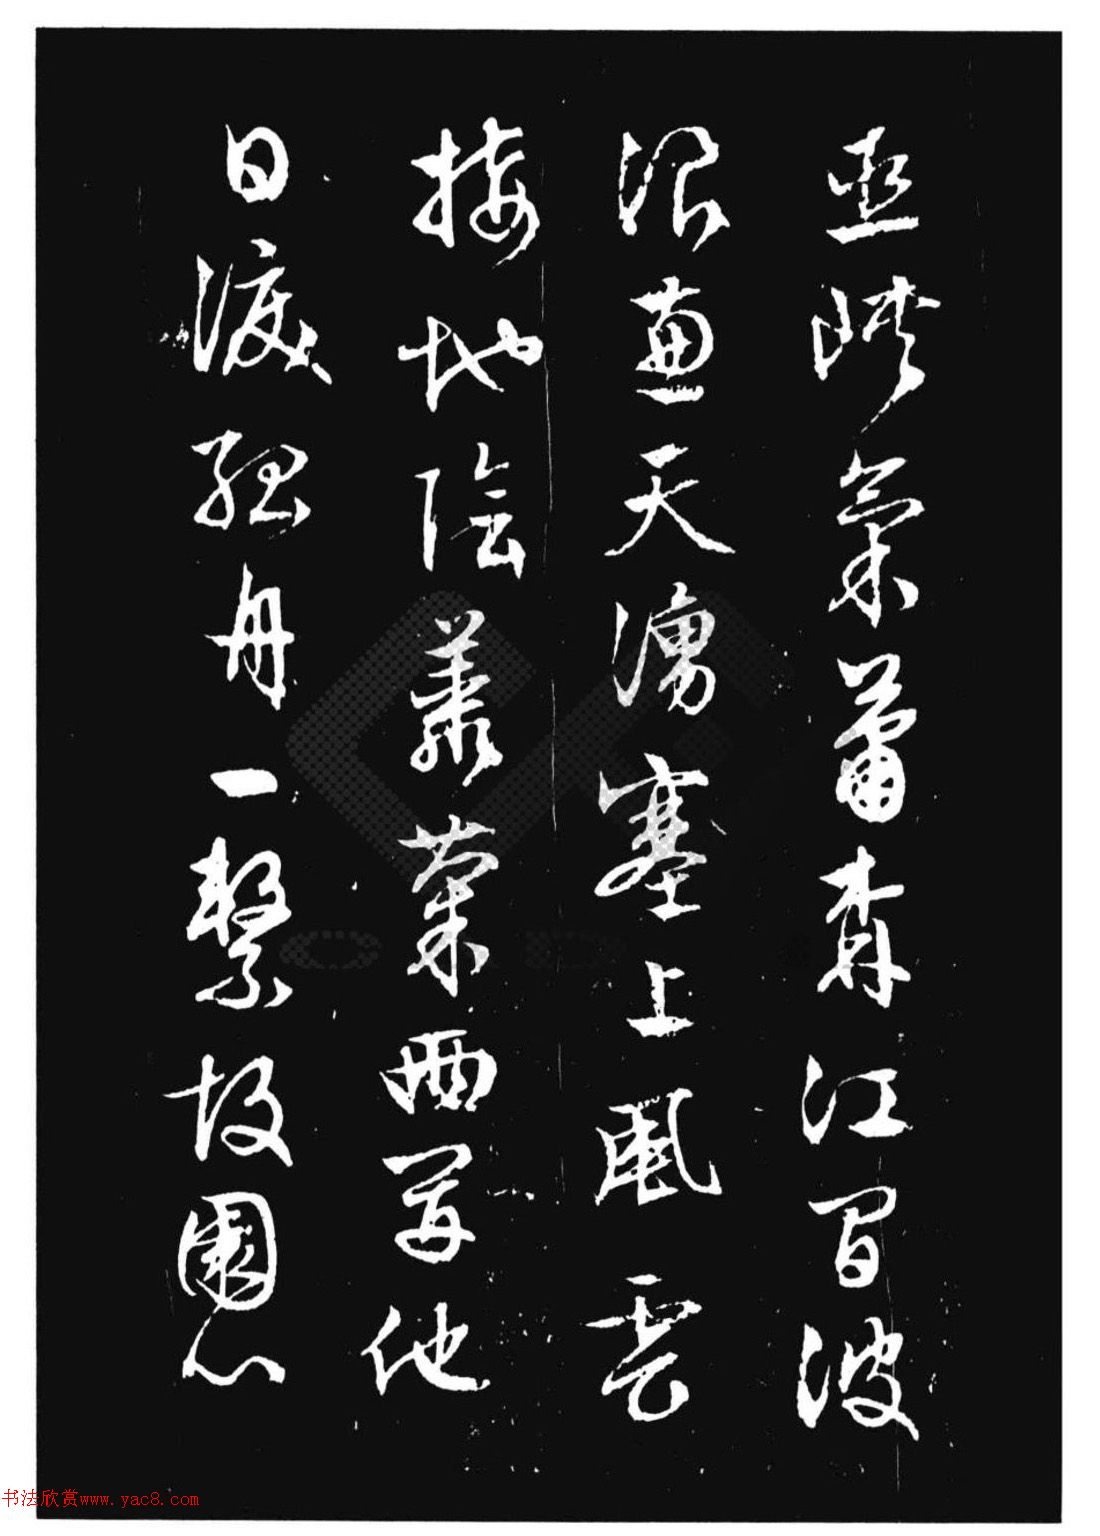 巫峽氣蕭森江間波
浪兼天湧塞上風雲
接地陰叢菊兩開他
日淚孤舟一繫故園心
书法欣赏www.yac8.com